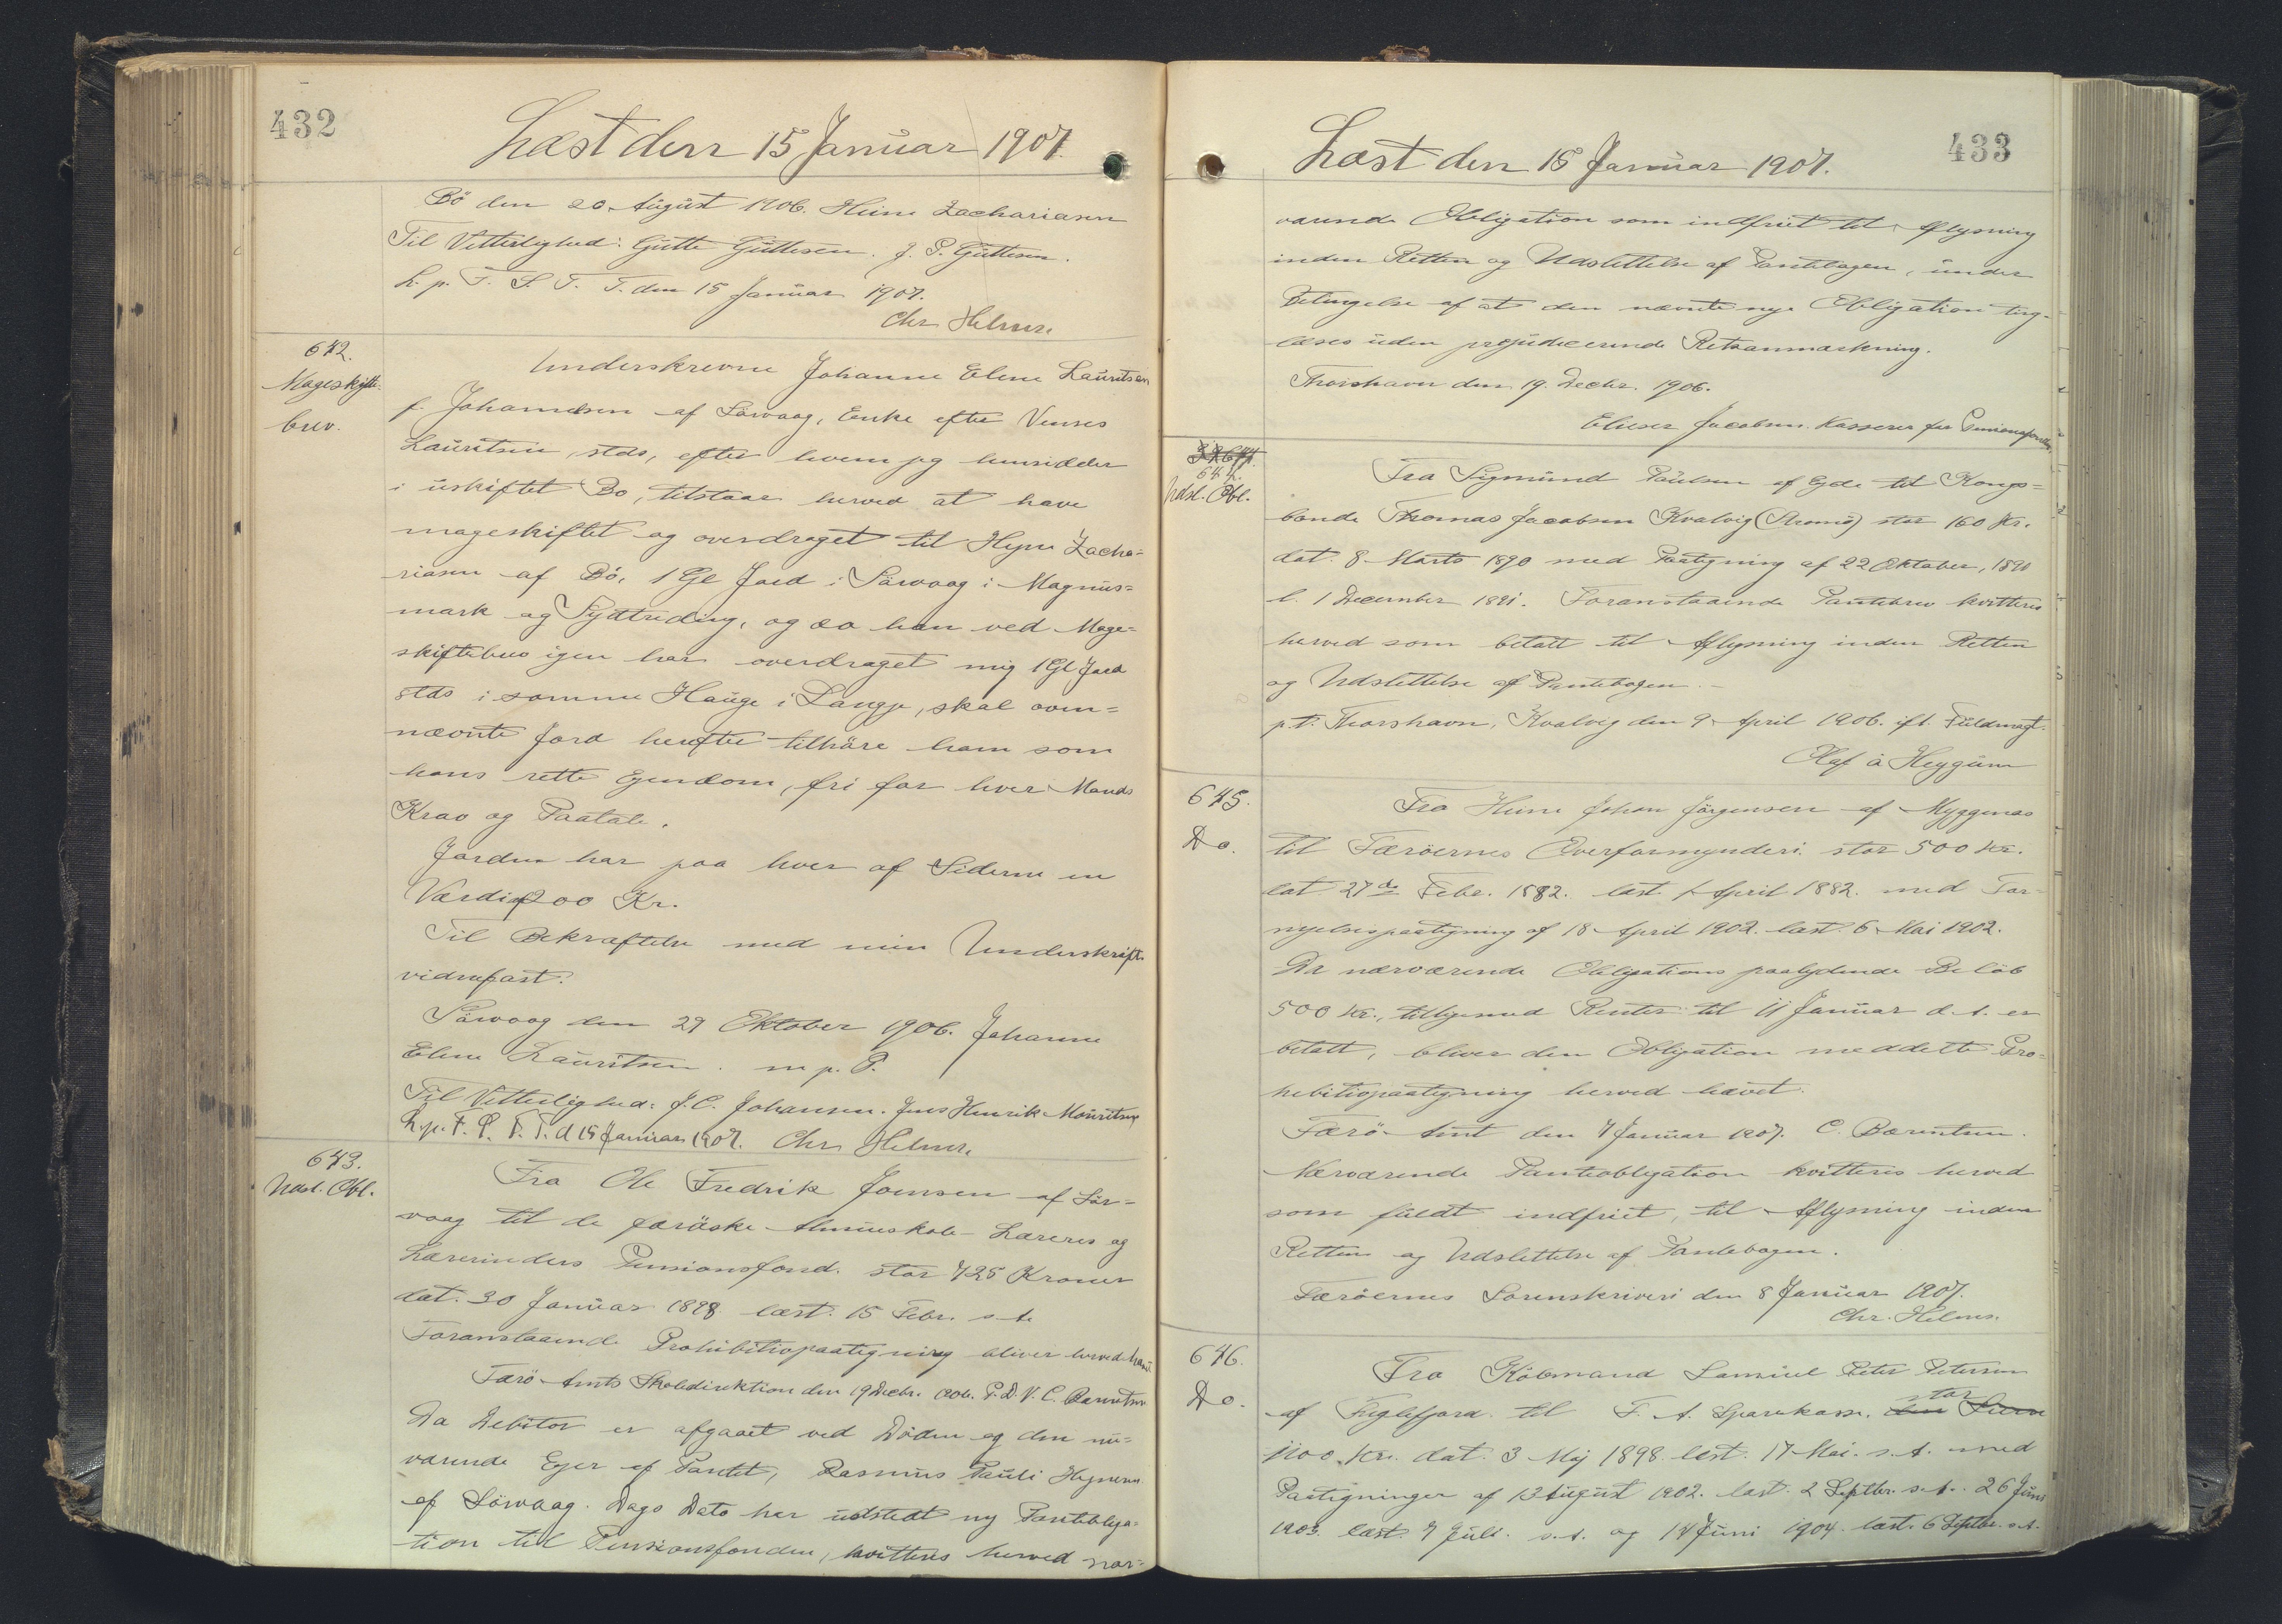 432
Læst den 15 Januar 1907.
Bö den 20 August 1906. Heine Zachariasen
Til Vitterlighed: Gutte Guttesen. J. P. Guttesen.
L. p. F. S. T. T. den 15 Januar 1907.
Chr Helms.
642.
Mageskifte-
brev.
Underskrevne Johanne Elene Lauritsen
f. Johannesen af Sörvaag, Enke efter Venses
Lauritsen, stds, efter hvem jeg hensidder
i uskiftet Bo, tilstaar herved at have
mageskiftet og overdraget til Heine Zacha=
riasen af Bö, 1 Gl Jord i Sörvaag i Magnus=
mark og Lyttreding, og da han ved Mage=
skiftebrev igen har overdraget mig 1 Gl Jord
stds i samme Hauge i Langje, skal oven=
nævnte Jord herefter tilhöre ham som
hans rette Ejendom, fri for hver Mands
Krav og Paatale.
Jorden har paa hver af Siderne en
Værdi af 200 Kr.
Til Bekræftelse med min Underskrift
vidnefast.
Sörvaag den 29 Oktober 1906. Johanne
Elene Lauritsen. m. p. P.
Til Vitterlighed: J. C. Johansen. Jens Henrik Mouritsen
L. p. F. S. T. T. d 15 Januar 1907. Chr Helms.
643.
Udsl. Obl.
Fra Ole Fredrik Joensen af Sör=
vaag til de færöske Almueskole- Læreres og
Lærerinders Pensionsfond. stor 725 Kroner
dat. 30 Januar 1898 læst. 15 Febr. s. A.
Foranstaaende Prohibitivpaategning bliver herved hævet
Færö Amts Skoledirektion den 19 Decbr. 1906. P. D. V. C. Bærentsen
Da Debitor er afgaaet ved Döden og den nu=
værende Ejer af Pantet, Rasmus Pauli
af Sörvaag. Dags Dato har udstedt ny Panteobliga=
tion til Pensionsfonden, kvitteres herved nær=
433
Læst den 15 Januar 1907.
værende Obligation som indfriet til Aflysning
inden Retten og Udslettelse af Pantebogen, under
Betingelse af at den nævnte nye Obligation ting-
læses uden præjudicerende Retsanmærkning.
Thorshavn den 19. Decbr. 1906.
Elieser Jacobsen. Kasserer for Pensionsfonden
644.
Udsl. Obl.
Fra Sigmund Poulsen af Ejde til Kongs=
bonde Thomas Jacobsen Kvalvig (Strömö) stor 160 Kr.
dat. 8 Marts 1890 med Paategning af 22 Oktober, 1891
l. 1 December 1891. Foranstaaende Pantebrev kvitteres
herved som betalt til Aflysning inden Retten
og Udslettelse af Pantebogen. -
p. t. Thorshavn, Kvalvig den 9 April 1906. ifl. Fuldmagt.
Olaf á Heygum
645.
Do.
Fra Heine Johan Jörgensen af Myggenæs
til Færöernes Overformynderi stor 500 Kr.
dat 27de Febr. 1882. læst. April 1882. med For-
nyelsespaategning af 18 April 1902. læst. 6 Mai 1902.
Da nærværende Obligations paalydende Belöb
500 Kr., tilligemed Renter til 11 Januar d. A. er
betalt, bliver den Obligation meddelte Pro=
hibitivpaategning herved hævet.
Færö Amt den 7 Januar 1907. C. Bærentsen.
Nærværende Panteobligation kvitteres herved
som fuldt indfriet, til Aflysning inden
Retten og Udslettelse af Pantebogen.
Færöernes Sorenskriveri den 8 Januar 1907.
Chr. Helms.
646.
Do.
Fra Köbmand Samuel Peter Petersen
af Fuglefjord. til F. A. Sparekasse. stor
1100 Kr. dat. 3 Maj 1898. læst. 17 Mai. s. A. med
Paategninger af 13 August 1902. læst. 2 Septbr. s. A. 26 Juni
1903. læst. 7 Juli. s. A. og 14 Juni 1904. læst. 6 Septbr. s. A.